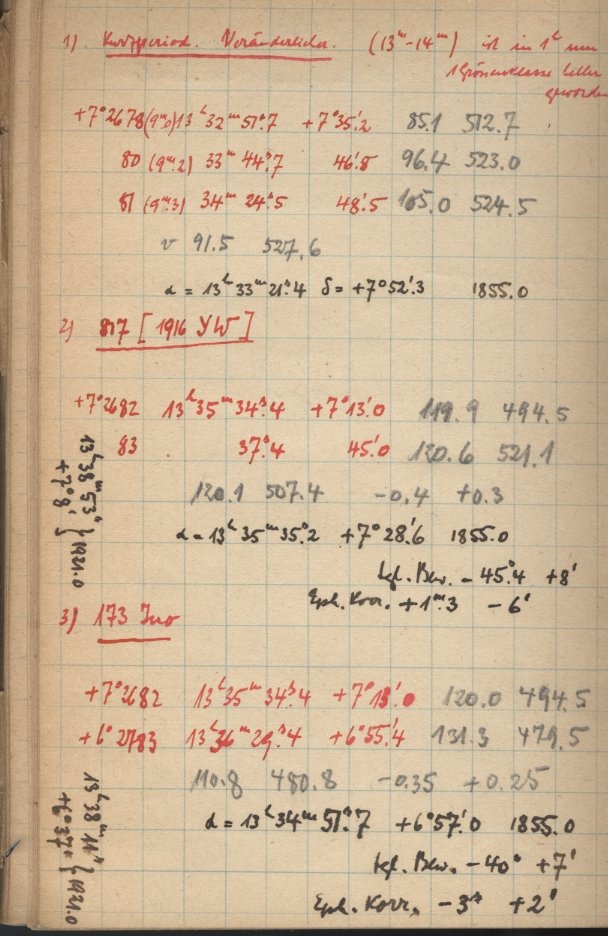 1) Kurzperiod. Veränderlicher. (13ᵐ-14ᵐ) ist in 1ʰ um
1 Grössenklasse heller
geworden
+7°2678 (9ᵐ.0) 13ʰ 32ᵐ 51ˢ.7 +7°35'.2 85.1 512.7
80 (9ᵐ.2) 33ᵐ 44ˢ.7 46'.8 96.4 523.0
81 (9ᵐ.3) 34ᵐ 24ˢ.5 48'.5 105.0 524.5
v 91.5 527.6
α = 13ʰ 33ᵐ 21ˢ.4 δ = +7°52'.3 1855.0
2) 817 [1916 YW]
+7°2682 13ʰ 35ᵐ 34ˢ.4 +7°13'.0 119.9 494.5
83 37ˢ.4 45'.0 120.6 521.1
120.1 507.4 -0.4 +0.3
α = 13ʰ 35ᵐ 35ˢ.2 +7°28'.6 1855.0
13ʰ 38ᵐ 53ˢ
+7° 8' } 1921.0
tgl. Bew. -45ˢ.4 +8'
Eph. Korr. +1ᵐ.3 -6'
3) 173 Ino
+7°2682 13ʰ 35ᵐ 34ˢ.4 +7°13'.0 120.0 494.5
+6°2783 13ʰ 36ᵐ 29ˢ.4 +6°55'.4 131.3 479.5
110.8 480.8 -0.35 +0.25
α = 13ʰ 34ᵐ 51ˢ.7 +6°57'.0 1855.0
13ʰ 38ᵐ 11ˢ
+6° 37' } 1921.0
tgl. Bew. -40ˢ +7'
Eph. Korr. -3ˢ +2'